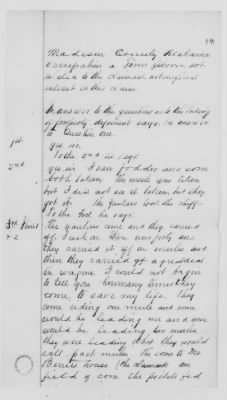 19
Madison County Alabama
occupation a Farmer not
to the Claimant
interest in the Claim
In answer to the questions as to the taking
of property deponent says in answer
to Question one
1st yes sir
To the 2nd he says
2nd yes sir I saw fodder and corn
both taken. The mule was taken
but I did not see it taken but they
got it. The Yankees took the
To the 3rd he says
The Yankees come and they carried
off on their
they carried it off on mules and
then they carried off a great deal
in wagons I could not begin
to tell you how many times they
come to save my life. They
come riding one mule and some
would be leading one and some
would be leading two mules
they were leading what they would
call pack mules. They come to Mrs
house (the Claimant) on
field of corn the